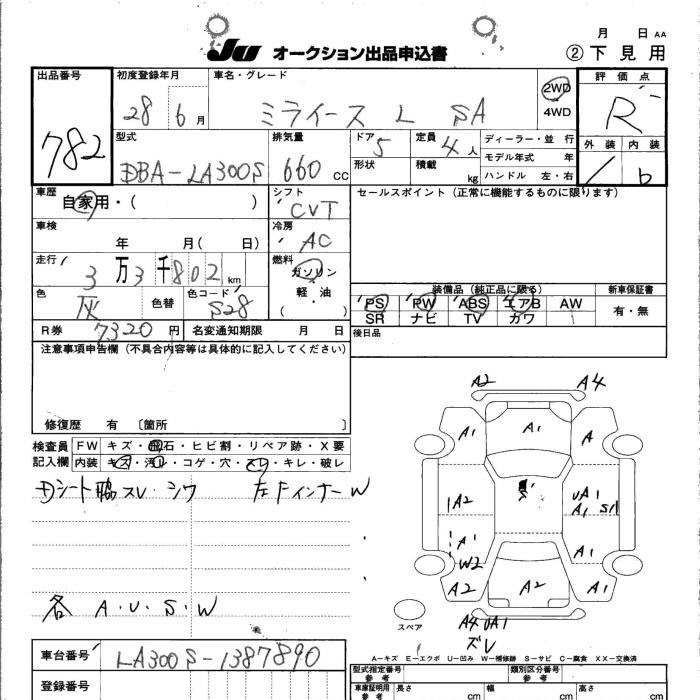 月 日 AA
JU オークション出品申込書 ②下見用
出品番号 初度登録年月 車名・グレード 評価点
782 28 6月 ミライース L SA 2WD 4WD R
型式 排気量 ドア 定員 ディーラー・並行 外装 内装
DBA-LA300S 660cc 5 4人 モデル年式 年
形状 積載 kg ハンドル 左・右 b
車歴 自家用・( ) シフト CVT セールスポイント(正常に機能するものに限ります)
車検 年 月( 日) 冷房 AC
走行 3万3千802km 燃料 ガソリン
軽・油
( )
装備品(純正品に限る) 新車保証書
色 灰 色替 色コード S28 PS PW ABS エアB AW 有・無
SR ナビ TV カワ
R券 7320円 名変通知期限 月 日 後日品
注意事項申告欄(不具合内容等は具体的に記入してください)
修復歴 有 〔箇所 〕
検査員 FW キズ・飛石・ヒビ割・リペア跡・X要
記入欄 内装 キズ・汚レ・コゲ・穴・スレ・キレ・破レ
シート スレ・シワ 左FインナーW
各 A・U・S・W
A2 A4
A1 A1 A
A2 UA1
A1 S1
A1 A1
W2
A2 A2 A1
A4 UA1
ズレ
スペア
A-キズ E-エクボ U-凹み W-補修跡 S-サビ C-腐食 XX-交換済
車台番号 LA300S-1387890
型式指定番号 参考 類別区分番号 参考
登録番号 車庫証明用 参考 長さ cm 幅 cm 高さ cm